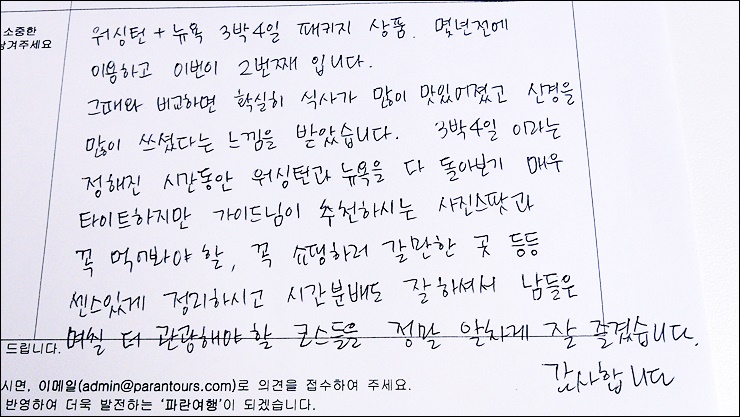 소중한
남겨주세요
워싱턴 + 뉴욕 3박4일 패키지 상품. 몇년전에
이용하고 이번이 2번째 입니다.
그때와 비교하면 확실히 식사가 많이 맛있어졌고 신경을
많이 쓰셨다는 느낌을 받았습니다. 3박4일 이라는
정해진 시간동안 워싱턴과 뉴욕을 다 돌아보기 매우
타이트하지만 가이드님이 추천하시는 사진스팟과
꼭 먹어봐야 할, 꼭 쇼핑하러 갈만한 곳 등등
센스있게 정리하시고 시간분배도 잘하셔서 남들은
며칠 더 관광해야할 코스들을 정말 알차게 잘 즐겼습니다.
감사합니다
드립니다.
시면, 이메일(admin@parantours.com)로 의견을 접수하여 주세요.
반영하여 더욱 발전하는 ‘파란여행’이 되겠습니다.